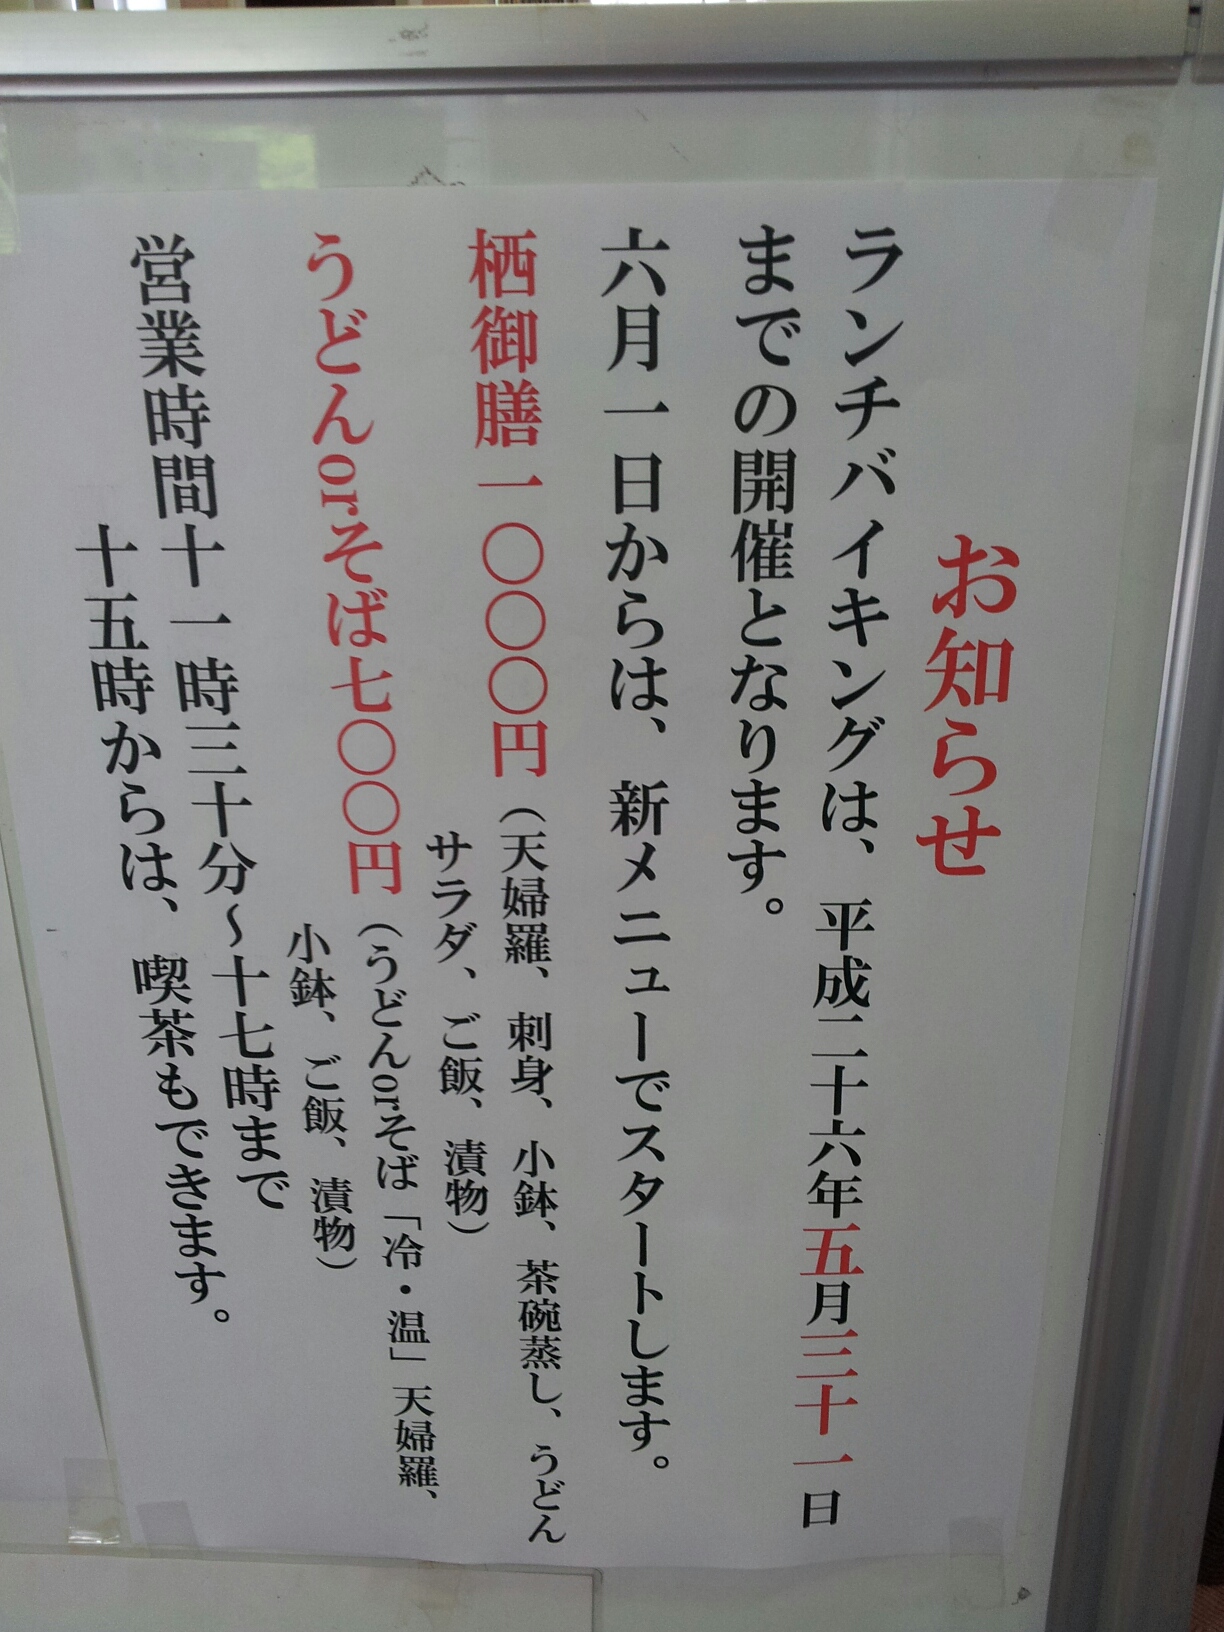 お知らせ
ランチバイキングは、平成二十六年五月三十一日
までの開催となります。
六月一日からは、新メニューでスタートします。
栖御膳一〇〇〇円(天婦羅、刺身、小鉢、茶碗蒸し、うどん
サラダ、ご飯、漬物)
うどんorそば七〇〇円(うどんorそば「冷・温」天婦羅、
小鉢、ご飯、漬物)
営業時間十一時三十分~十七時まで
十五時からは、喫茶もできます。